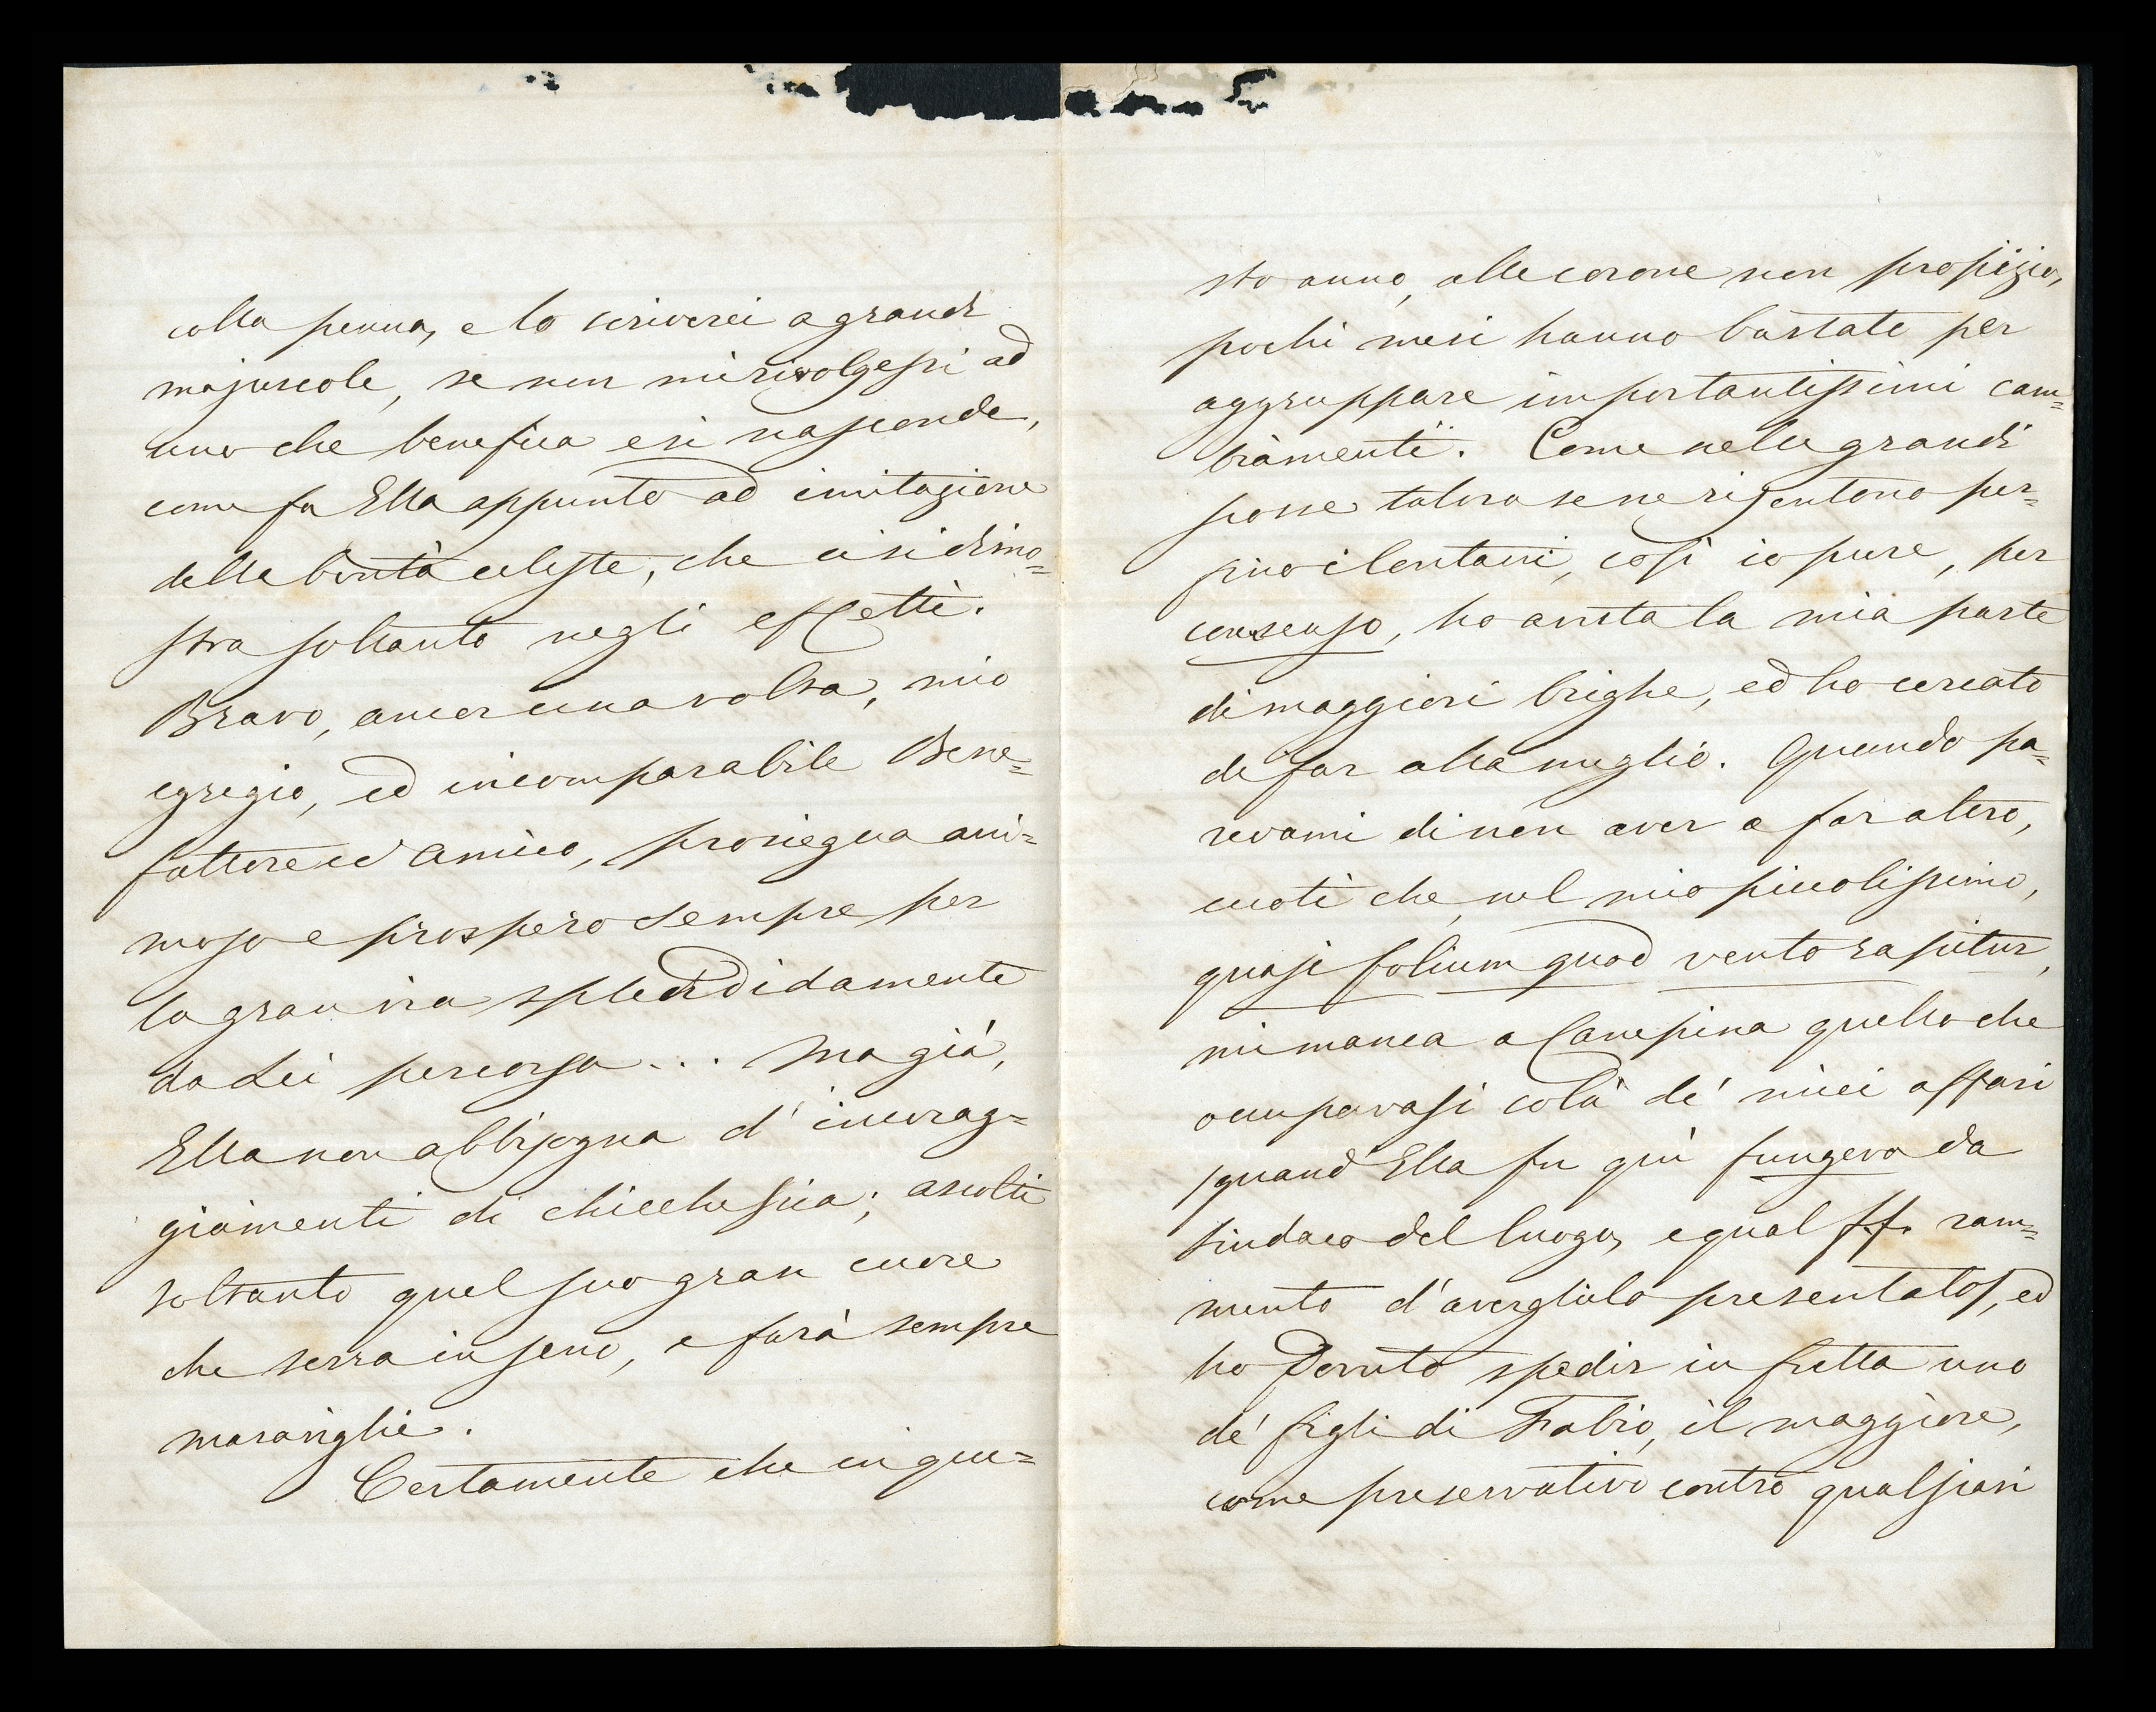 colla penna, e lo scriverei a grandi
majuscole, se non mi rivolgessi ad
uno che benefica e si nasconde,
come fa Ella appunto ad imitazione
della bontà celeste, che ci si dimo=
stra soltanto negli effetti.
Bravo, ancor una volta, mio
egregio, ed incomparabile Bene=
fattore ed amico, prosiegua ani=
moso e prospero sempre per
la gran via splendidamente
da Lei percorsa... Ma già,
Ella non abbisogna d'incorag=
giamenti di chicchesia; ascolti
soltanto quel suo gran cuore
che serra in seno, e farà sempre
maraviglie.
Certamente che in que=
sto anno, alle corone non propizio,
pochi mesi hanno bastato per
aggruppare importantissimi cam=
biamenti. Come nelle grandi
scosse talora se ne risentono per=
sino i lontani, così io pure, per
consenso, ho avuta la mia parte
di maggiori brighe, ed ho cercato
di far alla meglio. Quando pa=
revami di non aver a far altro,
ecco ti che, nel mio piccolissimo,
quasi folium quod vento rapitur,
mi manca a Canepina quello che
occupavasi colà de' miei affari
quand' Ella fu qui fungeva da
sindaco del luogo, e qual ff. ram=
mento d'averglielo presentato, ed
ho dovuto spedir in fretta uno
de' figli di Fabio, il maggiore,
come preservativo contro qualsiasi